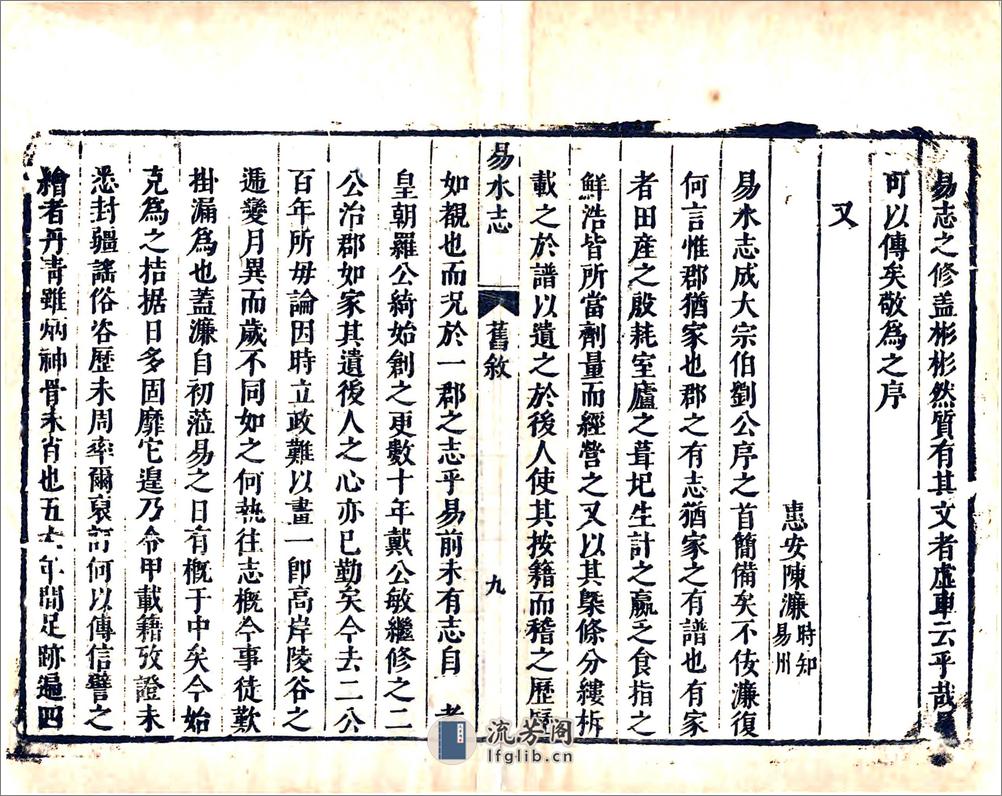 易志之修盖彬彬然質有其文者虛車云乎哉
可以傳矣敬爲之序
又
惠安陳濂時知易州
易水志成大宗伯劉公序之首簡備矣不佞濂復
何言惟郡猶家也郡之有志猶家之有譜也有家
者田産之殷耗室廬之葺圮生計之嬴乏食指之
鮮浩皆所當劑量而經營之又以其槩條分縷柝
載之於譜以遺之於後人使其按籍而稽之歷歷
易水志
舊敘
九
如覩也而况於一郡之志乎易前未有志自
皇朝羅公綺始創之更數十年戴公敏繼修之二
公治郡如家其遺後人之心亦已勤矣今去二公
百年所毋論因時立政難以畫一卽高岸陵谷之
遞變月異而歲不同如之何執往志概今事徒歎
掛漏爲也蓋濂自初蒞易之日有概于中矣今始
克爲之拮据日多固靡它遑乃令甲載籍攷證未
悉封疆謠俗咨歷未周率爾裒訂何以傳信譬之
繪者丹青雖炳神骨未肖也五六年間足跡遍四
流芳阁
lfglib.cn